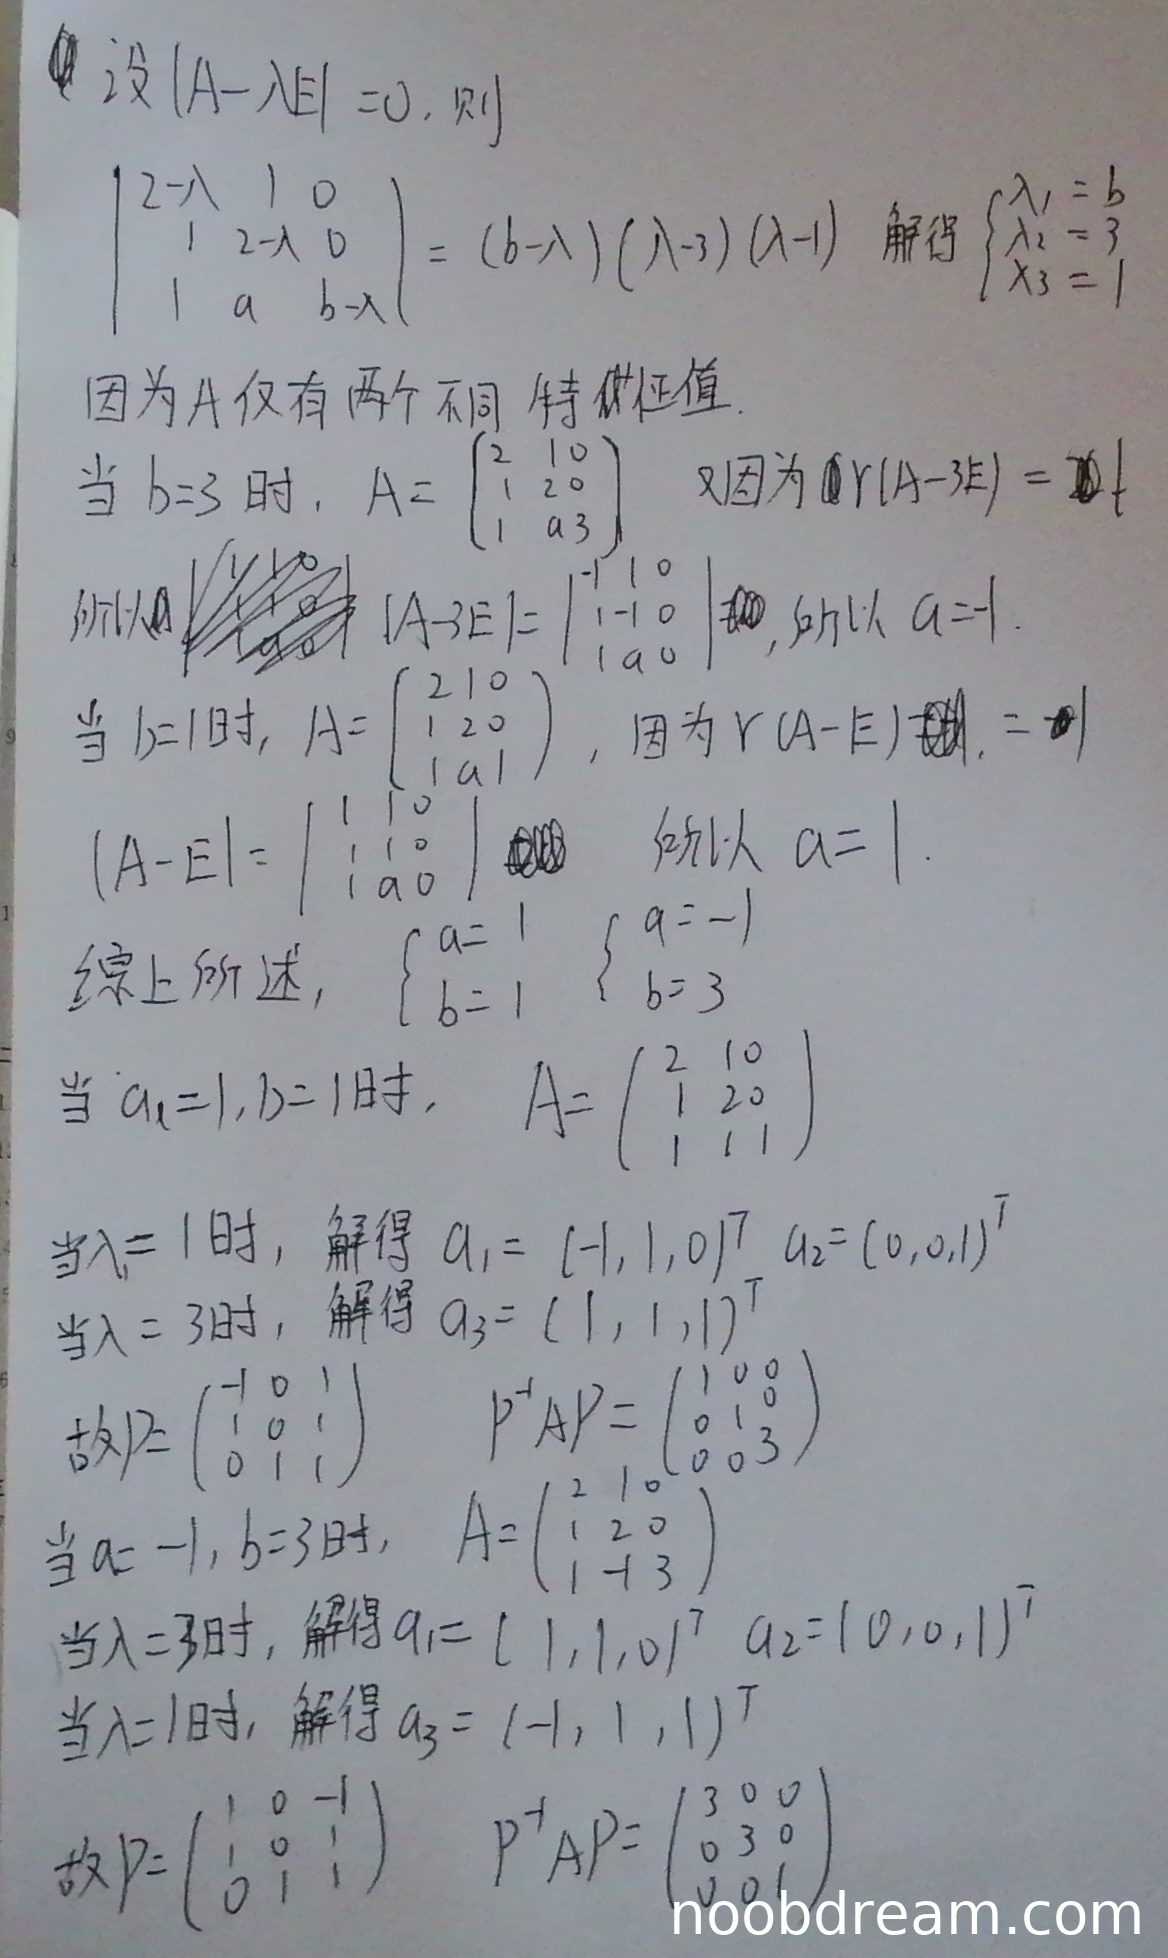 设|A-λE|=0, 则
|2-λ 1 0|
|1 2-λ 0| = (b-λ)(λ-3)(λ-1) 解得 {λ1=b λ2=3 λ3=1
|1 a b-λ|
因为A仅有两个不同特征值.
当b=3时, A=(2 1 0; 1 2 0; 1 a 3) 又因为r(A-3E)=1
所以 |A-3E|=|-1 1 0; 1 -1 0; 1 a 0|, 所以 a=-1.
当b=1时, A=(2 1 0; 1 2 0; 1 a 1), 因为r(A-E)=1
|A-E|=|1 1 0; 1 1 0; 1 a 0| 所以 a=1.
综上所述, {a=1 b=1 {a=-1 b=3
当a=1,b=1时, A=(2 1 0; 1 2 0; 1 1 1)
当λ=1时, 解得 a1=(-1,1,0)ᵀ a2=(0,0,1)ᵀ
当λ=3时, 解得 a3=(1,1,1)ᵀ
故P=(-1 0 1; 1 0 1; 0 1 1) P⁻¹AP=(1 0 0; 0 1 0; 0 0 3)
当a=-1,b=3时, A=(2 1 0; 1 2 0; 1 -1 3)
当λ=3时, 解得a1=(1,1,0)ᵀ a2=(0,0,1)ᵀ
当λ=1时, 解得a3=(-1,1,1)ᵀ
故P=(1 0 -1; 1 0 1; 0 1 1) P⁻¹AP=(3 0 0; 0 3 0; 0 0 1)
noobdream.com